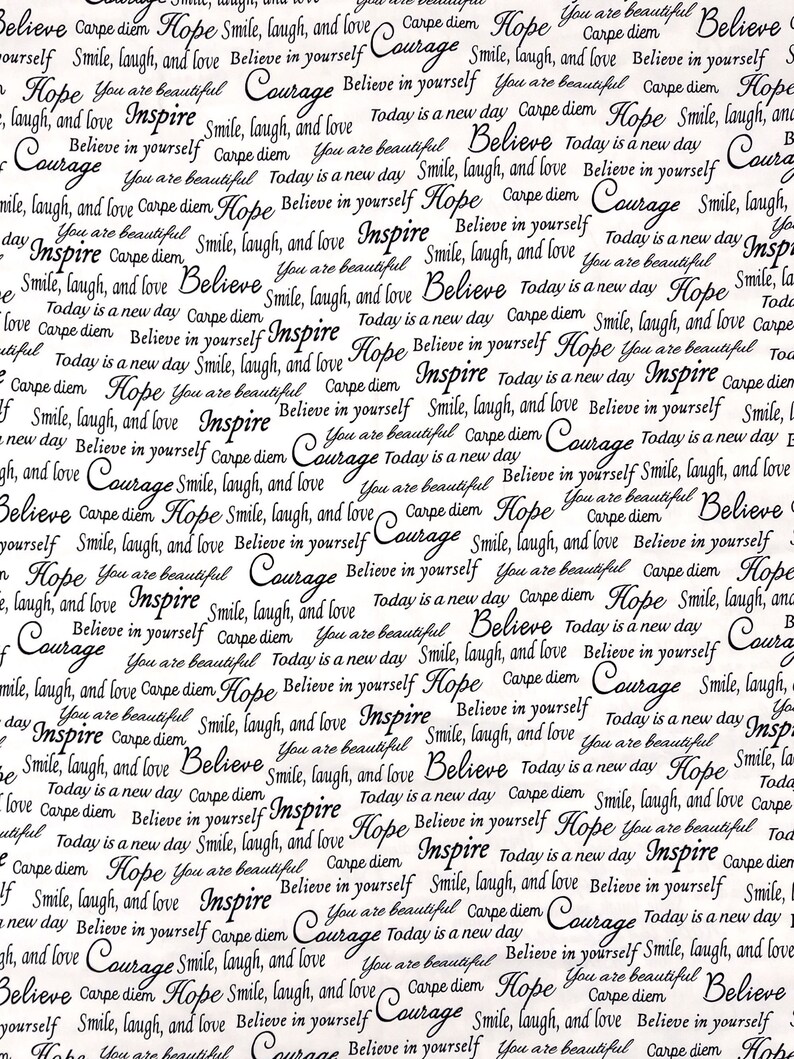 Courage Smile, laugh, and love You are beautiful
Believe Carpe diem Hope Smile, laugh, and love Carpe diem Hope You are beautiful Carpe diem Believe
yourself Smile, laugh, and love Believe in yourself Courage Smile, laugh, and love Believe in yourself
Hope You are beautiful Courage Believe in yourself You are beautiful Carpe diem Hope
laugh, and love Inspire Smile, laugh, and love Today is a new day Carpe diem Hope Smile, laugh, and
Courage Believe in yourself Carpe diem You are beautiful Believe Today is a new day
You are beautiful Today is a new day Smile, laugh, and love Believe in yourself Courage
Smile, laugh, and love Carpe diem Hope Believe in yourself Hope Carpe diem Courage Smile, laugh,
day You are beautiful Inspire Carpe diem Smile, laugh, and love Inspire Believe in yourself Today is a new day Inspi
Smile, laugh, and love Believe You are beautiful Smile, laugh, and love Smile, laugh, and love Believe Today is a new day You are beautiful Hope Smile, la
Today is a new day Carpe diem Today is a new day Carpe diem Smile, laugh, and love Toda
love Carpe diem Believe in yourself Inspire Hope Believe in yourself Hope You are beautiful Carpe
utiful Today is a new day Smile, laugh, and love Inspire Today is a new day Inspire Tod
Carpe diem Hope You are beautiful Carpe diem Carpe diem
Smile, laugh, and love Inspire Believe in yourself Smile, laugh, and love Believe in yourself Smile, l
new day Believe in yourself Carpe diem Courage You are beautiful Today is a new day Carpe diem Courage Today is a new day
gh, and love Courage Smile, laugh, and love You are beautiful Believe in yourself Smile, laugh, and love
Believe Carpe diem Hope Smile, laugh, and love Carpe diem Hope You are beautiful Carpe diem Believe
yourself Smile, laugh, and love Believe in yourself Courage Smile, laugh, and love Believe in yourself
Hope You are beautiful Courage Believe in yourself You are beautiful Carpe diem Hope
laugh, and love Inspire Smile, laugh, and love Today is a new day Carpe diem Hope Smile, laugh, and
Courage Believe in yourself Carpe diem You are beautiful Believe Today is a new day
You are beautiful Today is a new day Smile, laugh, and love Believe in yourself Courage
Smile, laugh, and love Carpe diem Hope Believe in yourself Hope Carpe diem Courage Smile, laugh,
day You are beautiful Inspire Carpe diem Smile, laugh, and love Inspire Believe in yourself Today is a new day Inspi
Smile, laugh, and love Believe You are beautiful Smile, laugh, and love Smile, laugh, and love Believe Today is a new day You are beautiful Hope Smile, la
Today is a new day Carpe diem Today is a new day Carpe diem Smile, laugh, and love Toda
love Carpe diem Believe in yourself Inspire Hope Believe in yourself Hope You are beautiful Carpe
utiful Today is a new day Smile, laugh, and love Inspire Today is a new day Inspire Tod
Carpe diem Hope You are beautiful Carpe diem Carpe diem
Smile, laugh, and love Inspire Believe in yourself Smile, laugh, and love Believe in yourself Smile, l
new day Believe in yourself Carpe diem Courage You are beautiful Today is a new day Carpe diem Courage Today is a new day
gh, and love Courage Smile, laugh, and love You are beautiful Believe in yourself Smile, laugh, and love
Believe Carpe diem Hope Smile, laugh, and love Carpe diem Hope You are beautiful Carpe diem Believe
yourself Smile, laugh, and love Believe in yourself Courage Smile, laugh, and love Believe in yourself
Hope You are beautiful Courage Believe in yourself You are beautiful Carpe diem Hope